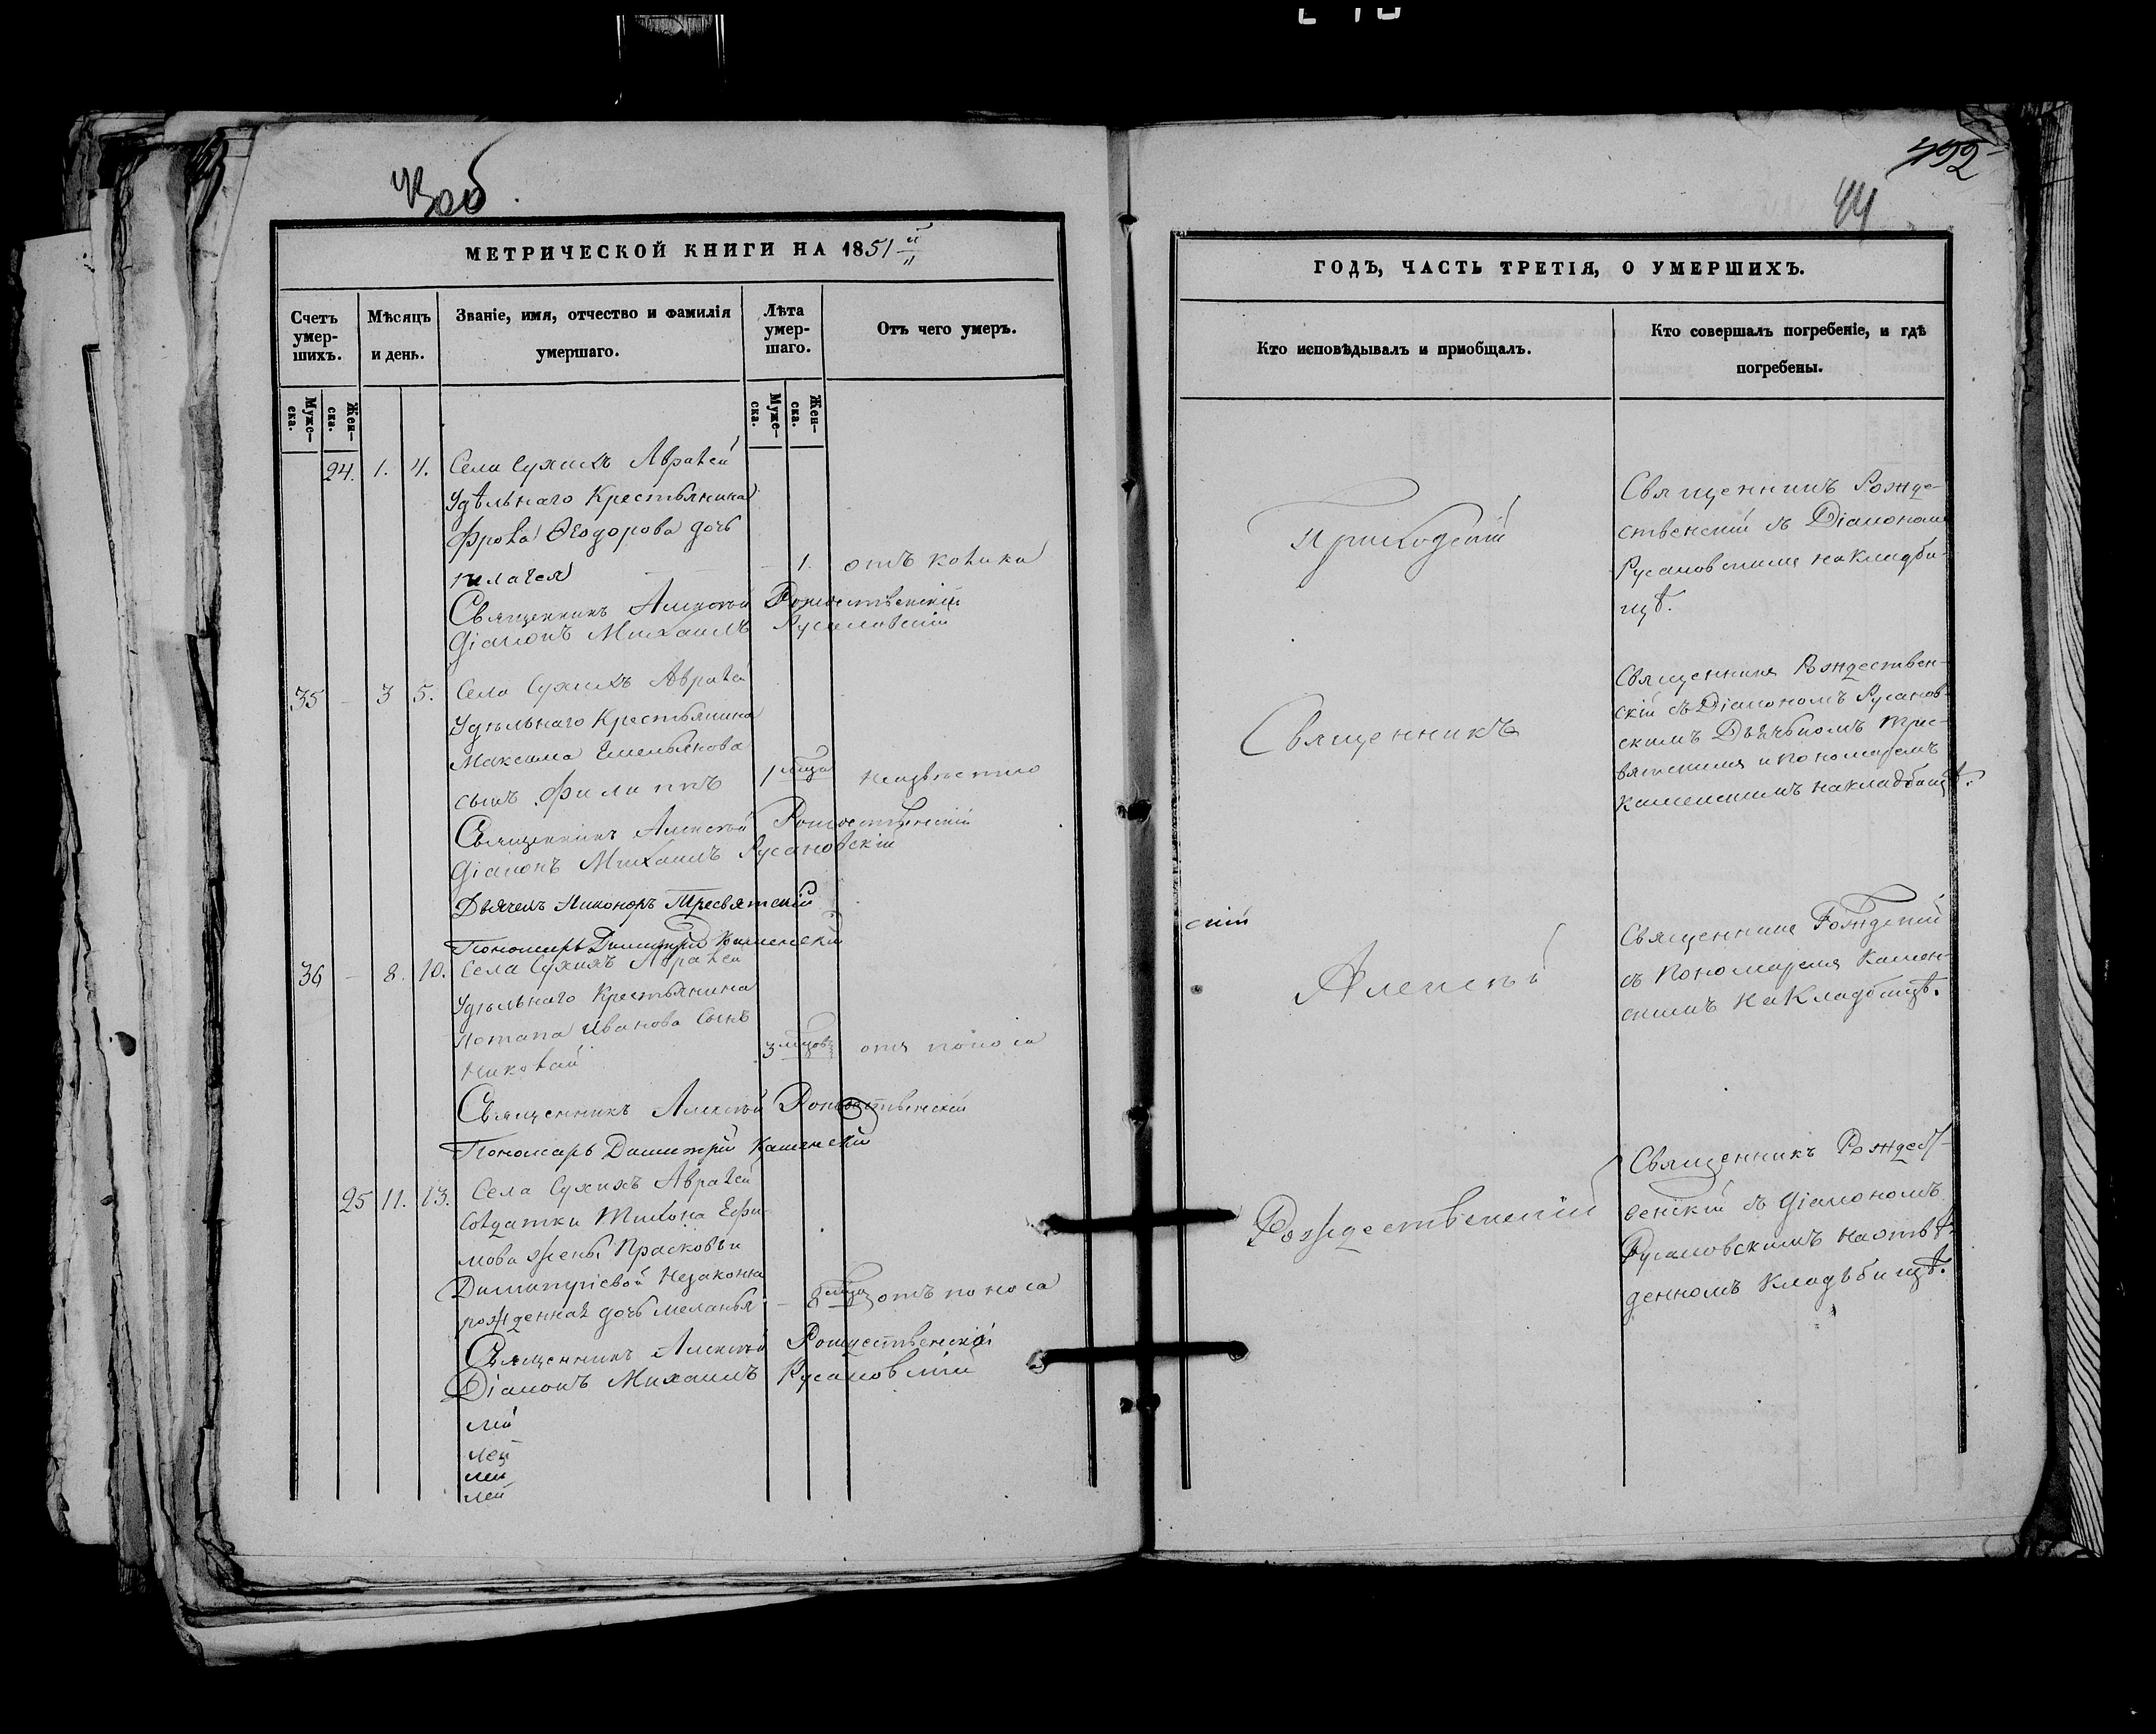 МЕТРИЧЕСКОЙ КНИГИ НА 1851 й
Счетъ умер-шихъ.
Мѣсяцъ и день.
Званіе, имя, отчество и фамилія умершаго.
Лѣта умер-шаго.
Отъ чего умеръ.
Муже-ска.
Жен-ска.
Муже-ска.
Жен-ска.
24. 1. 4. Села Сухихъ
Удѣльнаго Крестьянина
Фрола Ѳеодорова дочь
1. отъ колики
Священникъ Алексѣй Рождественскій
Діаконъ Михаилъ Русановскій
35 — 3 5. Села Сухихъ
Удѣльнаго Крестьянина
Максима Емельянова
сынъ Филиппъ 1
Священникъ Алексѣй Рождественскій
Діаконъ Михаилъ Русановскій
Дьячекъ Никоноръ Тресвятскій
Пономарь Димитрій Каменскій
36 — 8. 10. Села Сухихъ
Удѣльнаго Крестьянина
Потапа Иванова Сынъ
Николай 3 отъ поноса
Священникъ Алексѣй Рождественскій
Пономарь Димитрій Каменскій
25 11. 13. Села Сухихъ
Солдатки Тихона Ефи-
мова жены Прасковьи
Димитріевой Незаконно
рожденная дочь Меланья — 8 отъ поноса
Священникъ Алексѣй Рождественскій
Діаконъ Михаилъ Русановскій
лей
лей
лей
лей
492
44
ГОДЪ, ЧАСТЬ ТРЕТІЯ, О УМЕРШИХЪ.
Кто исповѣдывалъ и пріобщалъ.
Кто совершалъ погребеніе, и гдѣ погребены.
Священникъ Рожде-
ственскій съ Діакономъ
Русановскимъ на кладби-
щѣ.
Священникъ Рождествен-
скій съ Діакономъ Русанов-
скимъ Дьячкомъ Трес-
вятскимъ и пономаремъ
Каменскимъ на кладбищѣ.
Священникъ
скій
Алексѣй
съ Пономаремъ Камен-
скимъ на Кладбищѣ.
Рождественскій
Священникъ Рождест-
венскій съ Діакономъ
Русановскимъ на отве-
денномъ кладъбищѣ.